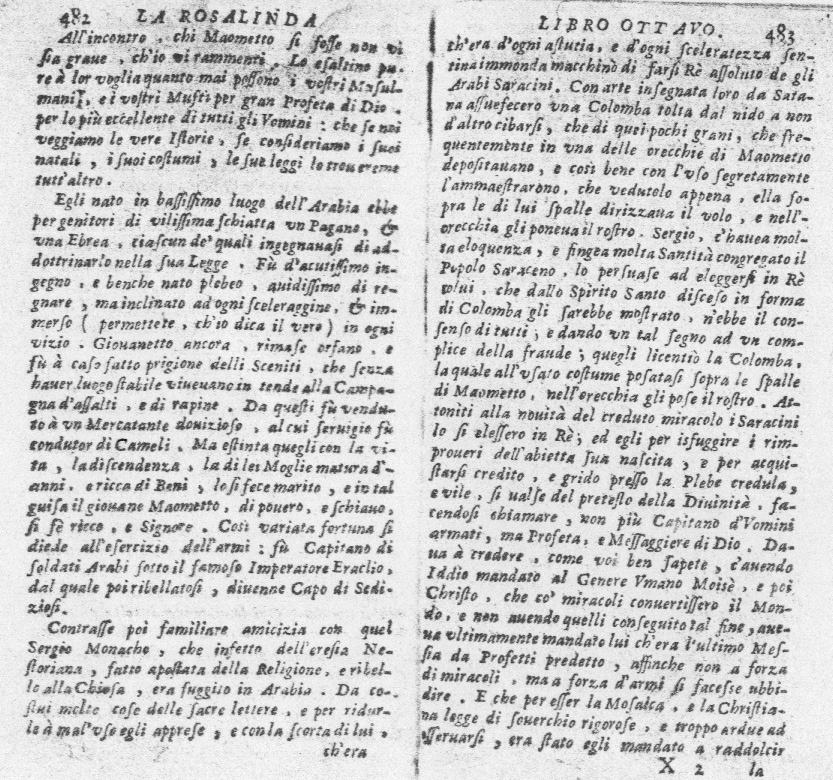 482 LA ROSALINDA
All'incontro, chi Maometto si fosse non vi
sia graue, ch'io vi rammenti. Lo esaltino pu-
re à lor voglia quanto mai possono i vostri Musul-
mani, e i vostri Mufti per gran Profeta di Dio.
per lo più eccellente di tutti gli Vomini: che se noi
veggiamo le vere Istorie, se consideriamo i suoi
natali, i suoi costumi, le sue leggi lo troueremo
tutt'altro.
Egli nato in bassissimo luogo dell'Arabia ebbe
per genitori di vilissima schiatta vn Pagano, &
vna Ebrea, ciascun de' quali ingegnauasi di ad-
dottrinarlo nella sua Legge. Fù d'acutissimo in-
gegno, e benche nato plebeo, auidissimo di re-
gnare, ma inclinato ad ogni sceleraggine, & im-
merso (permettete, ch'io dica il vero) in ogni
vizio. Giouanetto ancora, rimase orfano, e
fù à caso fatto prigione delli Sceniti, che senza
hauer luogo stabile viueuano in tende alla Campa-
gna d'assalti, e di rapine. Da questi fù vendu-
to à vn Mercatante douizioso, al cui seruigio fù
condutor di Cameli. Ma estinta quegli con la vi-
ta, la discendenza, la di lei Moglie matura d'-
anni. e ricca di Beni, lo si fece marito, e in tal
guisa il giouane Maometto, di pouero, e schiauo,
si fè ricco, e Signore. Così variata fortuna si
diede all'esercizio dell'armi: fù Capitano di
soldati Arabi sotto il famoso Imperatore Eraclio,
dal quale poi ribellatosi, diuenne Capo di Sedi-
ziosi.
Contrasse poi familiare amicizia con quel
Sergio Monacho, che infetto dell'eresia Ne-
storiana, fatto apostata della Religione, e ribel-
lo alla Chiesa, era fuggito in Arabia. Da co-
stui molte cose delle sacre lettere, e per ridur-
le à mal'vso egli apprese, e con la scorta di lui,
ch'era
LIBRO OTTAVO. 483
ch'era d'ogni astutia, e d'ogni sceleratezza sen-
tina immonda macchinò di farsi Rè assoluto de gli
Arabi Saracini. Con arte insegnata loro da Sata-
na assuefecero vna Colomba tolta dal nido a non
d'altro cibarsi, che di quei pochi grani, che fre-
quentemente in vna delle orecchie di Maometto
depositauano, e così bene con l'vso segretamente
l'ammaestrarono, che vedutolo appena, ella so-
pra le di lui spalle dirizzaua il volo, e nell'-
orecchia gli poneua il rostro. Sergio, c'hauea mol-
ta eloquenza, e fingea molta Santità congregato il
Popolo Saraceno, lo persuase ad eleggersi in Rè
colui, che dallo Spirito Santo disceso in forma
di Colomba gli sarebbe mostrato, n'ebbe il con-
senso di tutti; e dando vn tal segno ad vn com-
plice della fraude; quegli licentiò la Colomba,
la quale all'vsato costume posatasi sopra le spalle
di Maometto, nell'orecchia gli pose il rostro. At-
toniti alla nouità del creduto miracolo i Saracini
lo si elessero in Rè; ed egli per isfuggire i rim-
proueri dell'abietta sua nascita, e per acqui-
starsi credito, e grido presso la Plebe credula,
e vile, si ualse del pretesto della Diuinità, fa-
cendosi chiamare, non più Capitano d'Vomini
armati, ma Profeta, e Messaggiere di Dio. Da-
ua à credere, come voi ben sapete, c'auendo
Iddio mandato al Genere Vmano Moisè, e poi
Christo, che co' miracoli conuertissero il Mon-
do, e non auendo quelli conseguito tal fine, aue-
ua vltimamente mandato lui ch'era l'ultimo Mes-
sia da Profetti predetto, affinche non a forza
di miracoli, ma a forza d'armi si facesse ubbi-
dire. E che per esser la Mosaica, e la Christia-
na legge di souerchio rigorose, e troppo ardue ad
osseruarsi, era stato egli mandato a raddolcir
X 2 la